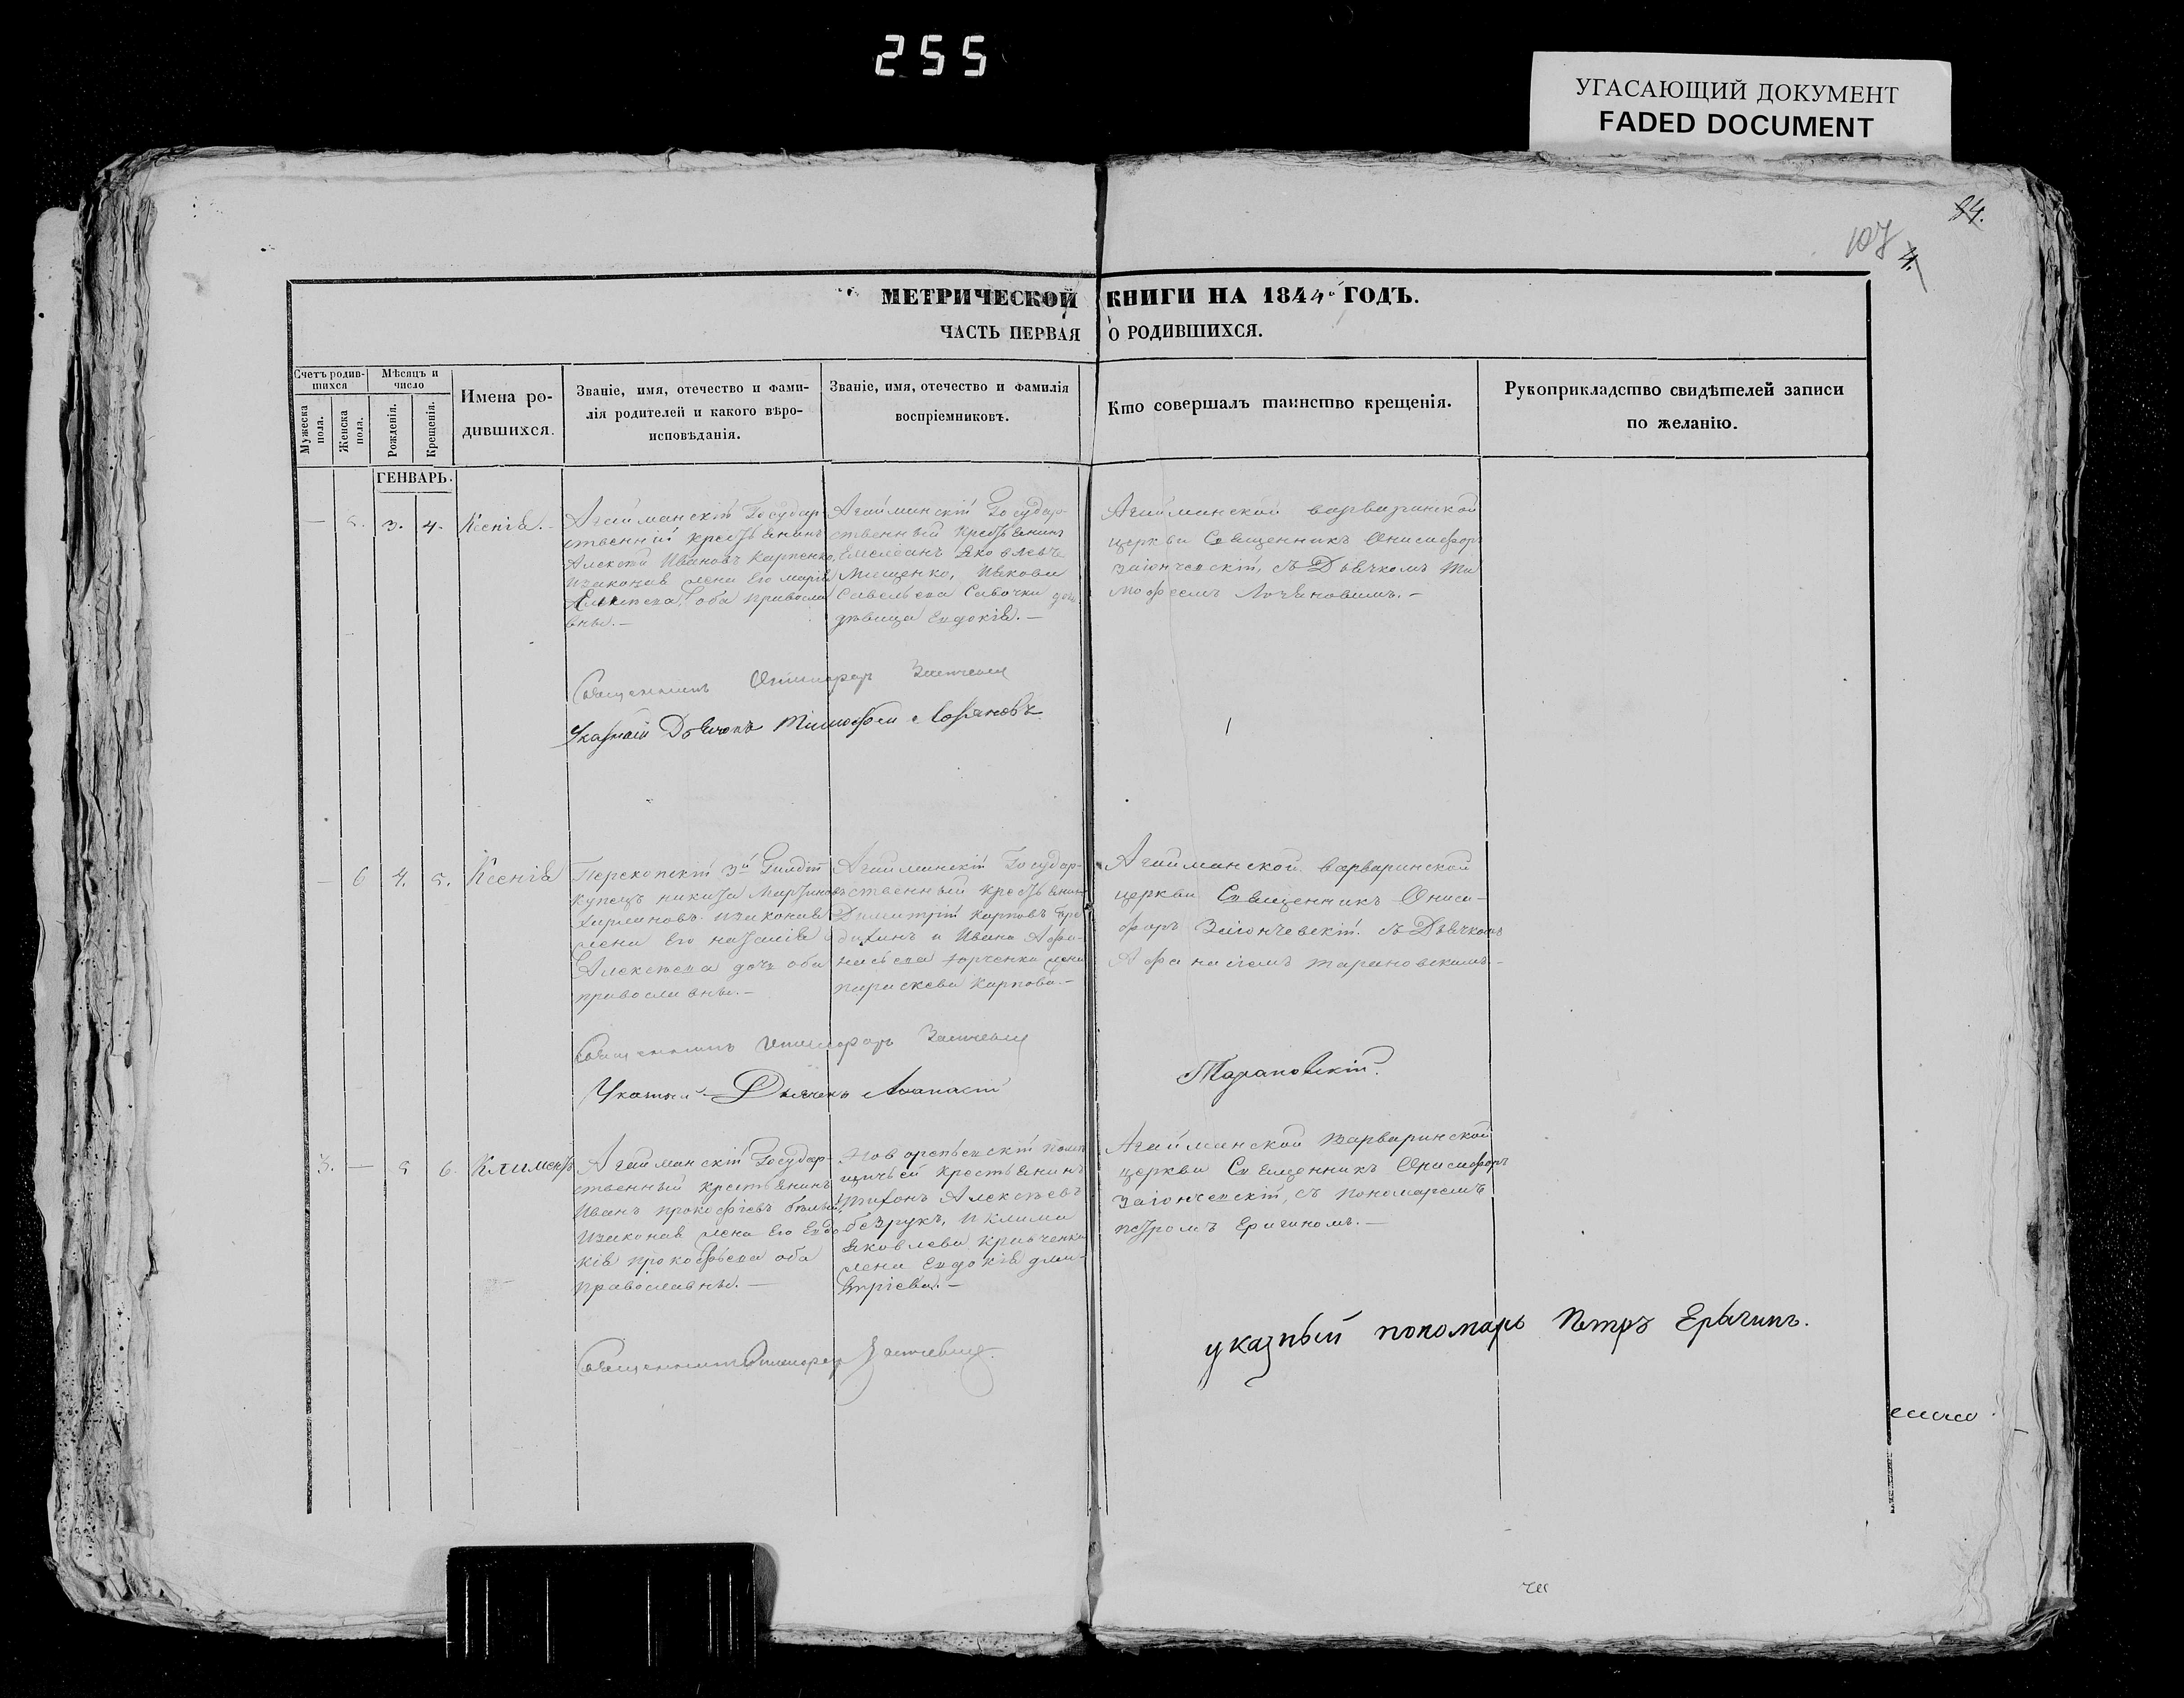 255
УГАСАЮЩИЙ ДОКУМЕНТ
FADED DOCUMENT
107
4.
МЕТРИЧЕСКОЙ КНИГИ НА 1844 ГОДЪ.
ЧАСТЬ ПЕРВАЯ О РОДИВШИХСЯ.
Счетъ родив-
шихся
Мужеска
пола.
Женска
пола.
Мѣсяцъ и
число
Рожденія.
Крещенія.
Имена ро-
дившихся.
Званіе, имя, отечество и фами-
лія родителей и какого вѣро-
исповѣданія.
Званіе, имя, отечество и фамилія
воспріемниковъ.
Кто совершалъ таинство крещенія.
Рукоприкладство свидѣтелей записи
по желанію.
ГЕНВАРЬ.
— 5. 3. 4. Ксенія.
Агайманскій Государ-
ственный крестьянинъ
Алексѣй Ивановъ Карпенко
изаконая жена Его марія
оба православ
ные.—
Агайманскій Государ-
ственный крестьянинъ
Емеліанъ Яковлевъ
Мищенко, Иякова
Савельева Савочки дочь
дѣвица Евдокія.—
Агайманской варваринской
церкви Священникъ Онисифоръ
Заіончевскій, съ Дьячкомъ Ти
мофеемъ Лобяновымъ.—
Священникъ Онисифоръ
Указный Дьячокъ Тимофей Лобяновъ
— 6 4. 5. Ксенія
Перекопскій 3й Гилдіи
купецъ никита Мартиновъ
изаконая
жена Его наталія
Алексѣева дочь оба
православные.—
Агайманскій Государ-
ственный крестьянинъ
Димитрій Карповъ
и Ивана Афа-
насьева жена
параскева Карпова.—
Агайманской варваринской
церкви Священникъ Ониси-
форъ Заіончевскій. съ Дьячкомъ
Афанасіемъ тарановскимъ.—
Священникъ Онисифоръ
Указный Дьячекъ Афанасій
Тарановскій.
3. — 5 6. Климентъ
Агайманскій Государ-
ственный крестьянинъ
Иванъ прокофіевъ
изаконая жена Его Евдо
кія прокофьева оба
православные.—
помѣ
щичьей крестьянинъ
Тихонъ Алексѣевъ
безрукъ, и Клима
Яковлева кравченка
жена Евдокія дми-
тріева.—
Агайманской варваринской
церкви Священникъ Онисифоръ
Заіончевскій, съ пономаремъ
петромъ Еричиномъ.—
Священникъ Онисифоръ
указный пономарь Петръ Ерычинъ.